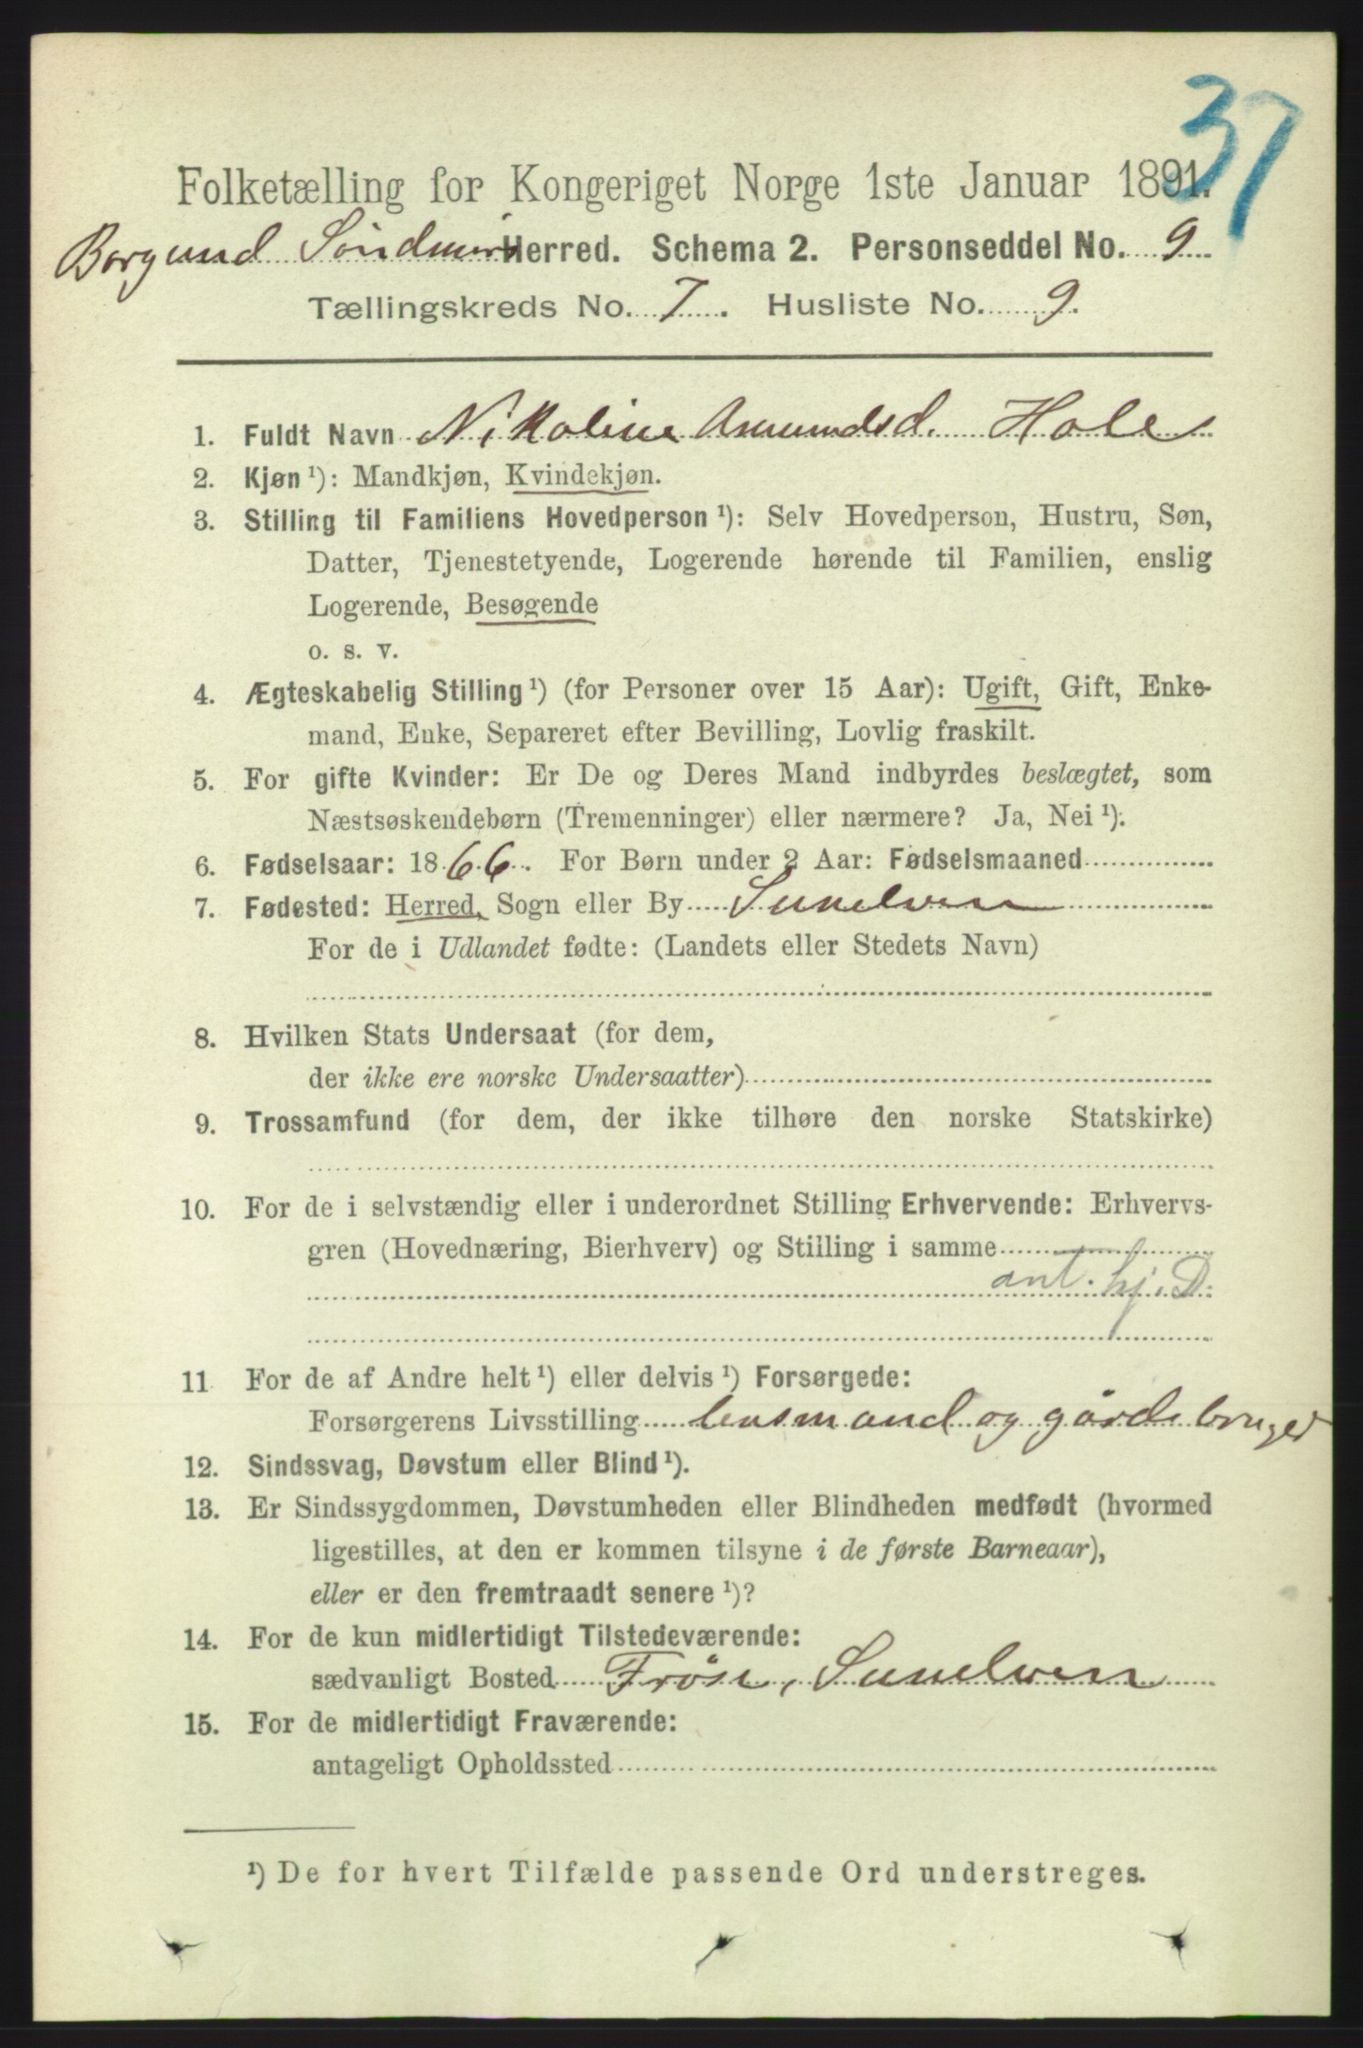 37
Folketælling for Kongeriget Norge 1ste Januar 1891.
Borgund Söndmör Herred. Schema 2. Personseddel No. 9
Tællingskreds No. 7. Husliste No. 9.
1. Fuldt Navn Nikoline Asmundsd. Hole
2. Kjøn ¹): Mandkjøn, Kvindekjøn.
3. Stilling til Familiens Hovedperson ¹): Selv Hovedperson, Hustru, Søn,
Datter, Tjenestetyende, Logerende hørende til Familien, enslig
Logerende, Besøgende
o. s. v.
4. Ægteskabelig Stilling ¹) (for Personer over 15 Aar): Ugift, Gift, Enke-
mand, Enke, Separeret efter Bevilling, Lovlig fraskilt.
5. For gifte Kvinder: Er De og Deres Mand indbyrdes beslægtet, som
Næstsøskendebørn (Tremenninger) eller nærmere? Ja, Nei ¹).
6. Fødselsaar: 1866. For Børn under 2 Aar: Fødselsmaaned
7. Fødested: Herred, Sogn eller By Sunelven
For de i Udlandet fødte: (Landets eller Stedets Navn)
8. Hvilken Stats Undersaat (for dem,
der ikke ere norske Undersaatter)
9. Trossamfund (for dem, der ikke tilhøre den norske Statskirke)
10. For de i selvstændig eller i underordnet Stilling Erhvervende: Erhvervs-
gren (Hovednæring, Bierhverv) og Stilling i samme
ant. hj. D.
11 For de af Andre helt ¹) eller delvis ¹) Forsørgede:
Forsørgerens Livsstilling lensmand og gårdebruger
12. Sindssvag, Døvstum eller Blind ¹).
13. Er Sindssygdommen, Døvstumheden eller Blindheden medfødt (hvormed
ligestilles, at den er kommen tilsyne i de første Barneaar),
eller er den fremtraadt senere ¹)?
14. For de kun midlertidigt Tilstedeværende:
sædvanligt Bosted Fröse, Sunelven
15. For de midlertidigt Fraværende:
antageligt Opholdssted
¹) De for hvert Tilfælde passende Ord understreges.